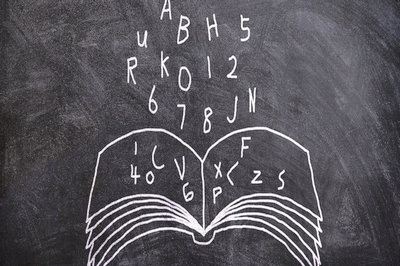 A
u B H 5
R K O 1 2
6 7 8 J N
1 C V F
4 0 6 X < Z S
P